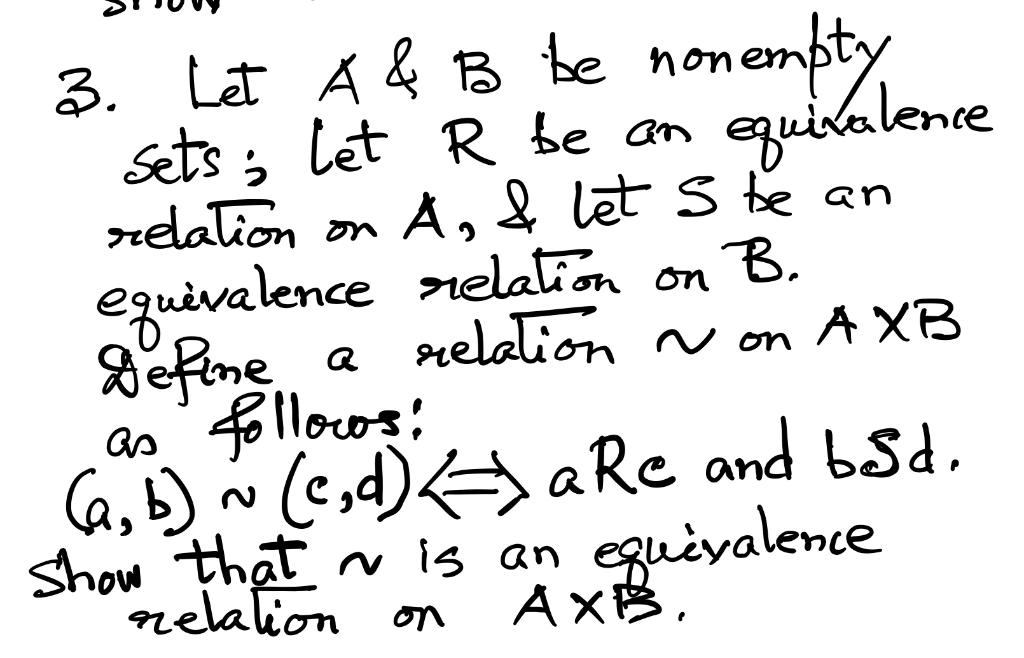 show
3. Let A & B be nonempty
sets; let R be an equivalence
relation on A, & let S be an
equivalence relation on B.
Define a relation ~ on A×B
as follows:
(a,b) ~ (c,d) ⟺ aRc and bSd.
Show that ~ is an equivalence
relation on A×B.